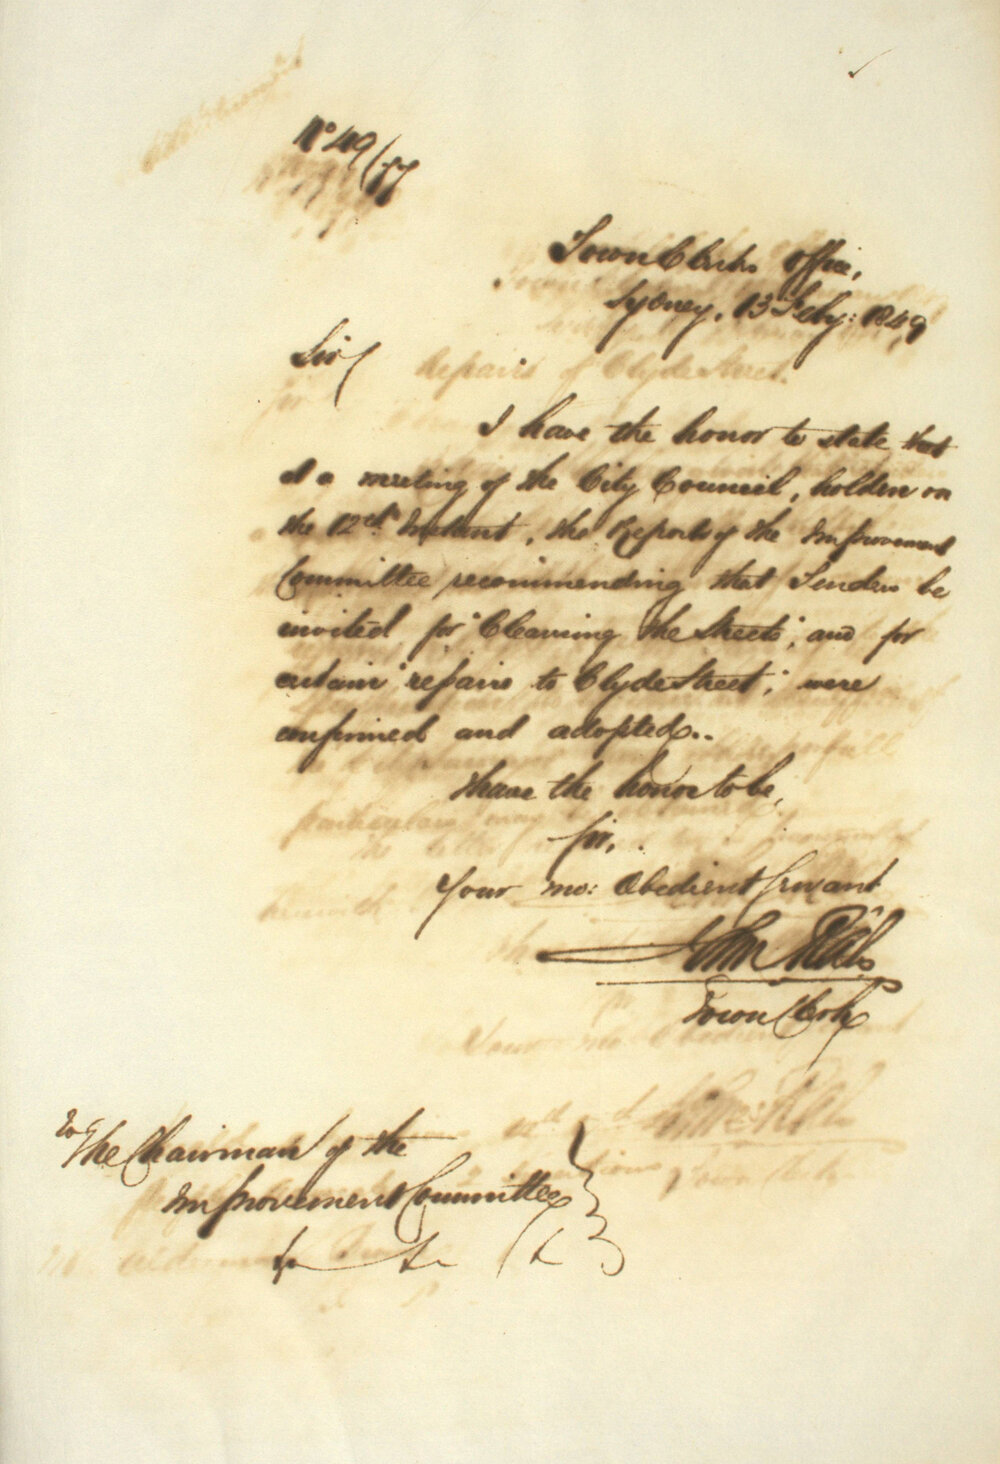 No 49/57
Town Clerks Office,
Sydney, 13 Feby: 1849
Sir
Repairs of Clyde Street.
I have the honor to state that
at a meeting of the City Council, holden on
the 12th Instant, the Reports of the Improvement
Committee recommending that Tenders be
invited for "Cleansing the Streets", and for
certain "repairs to Clyde Street", were
confirmed and adopted..
I have the honor to be,
Sir,
Your mo: Obedient Servant
John Rae
Town Clerk
To The Chairman of the
Improvement Committee